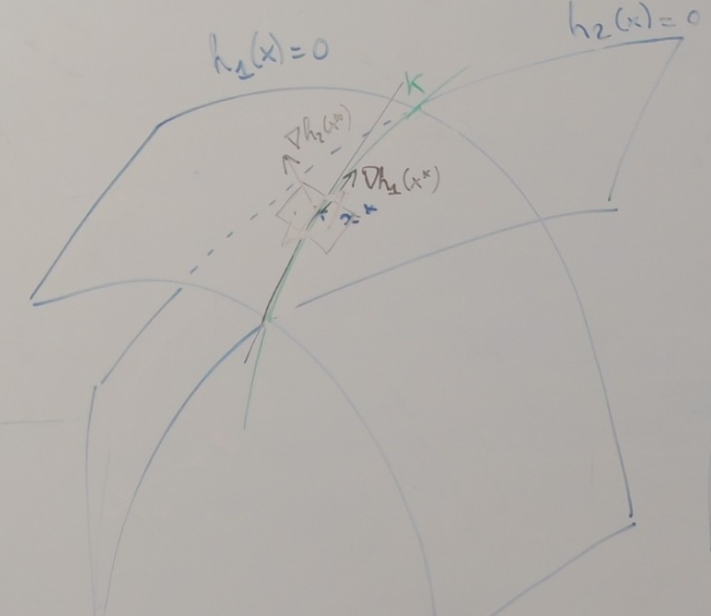 h₁(x)=0
h₂(x)=0
K
∇h₂(x*)
∇h₁(x*)
x*